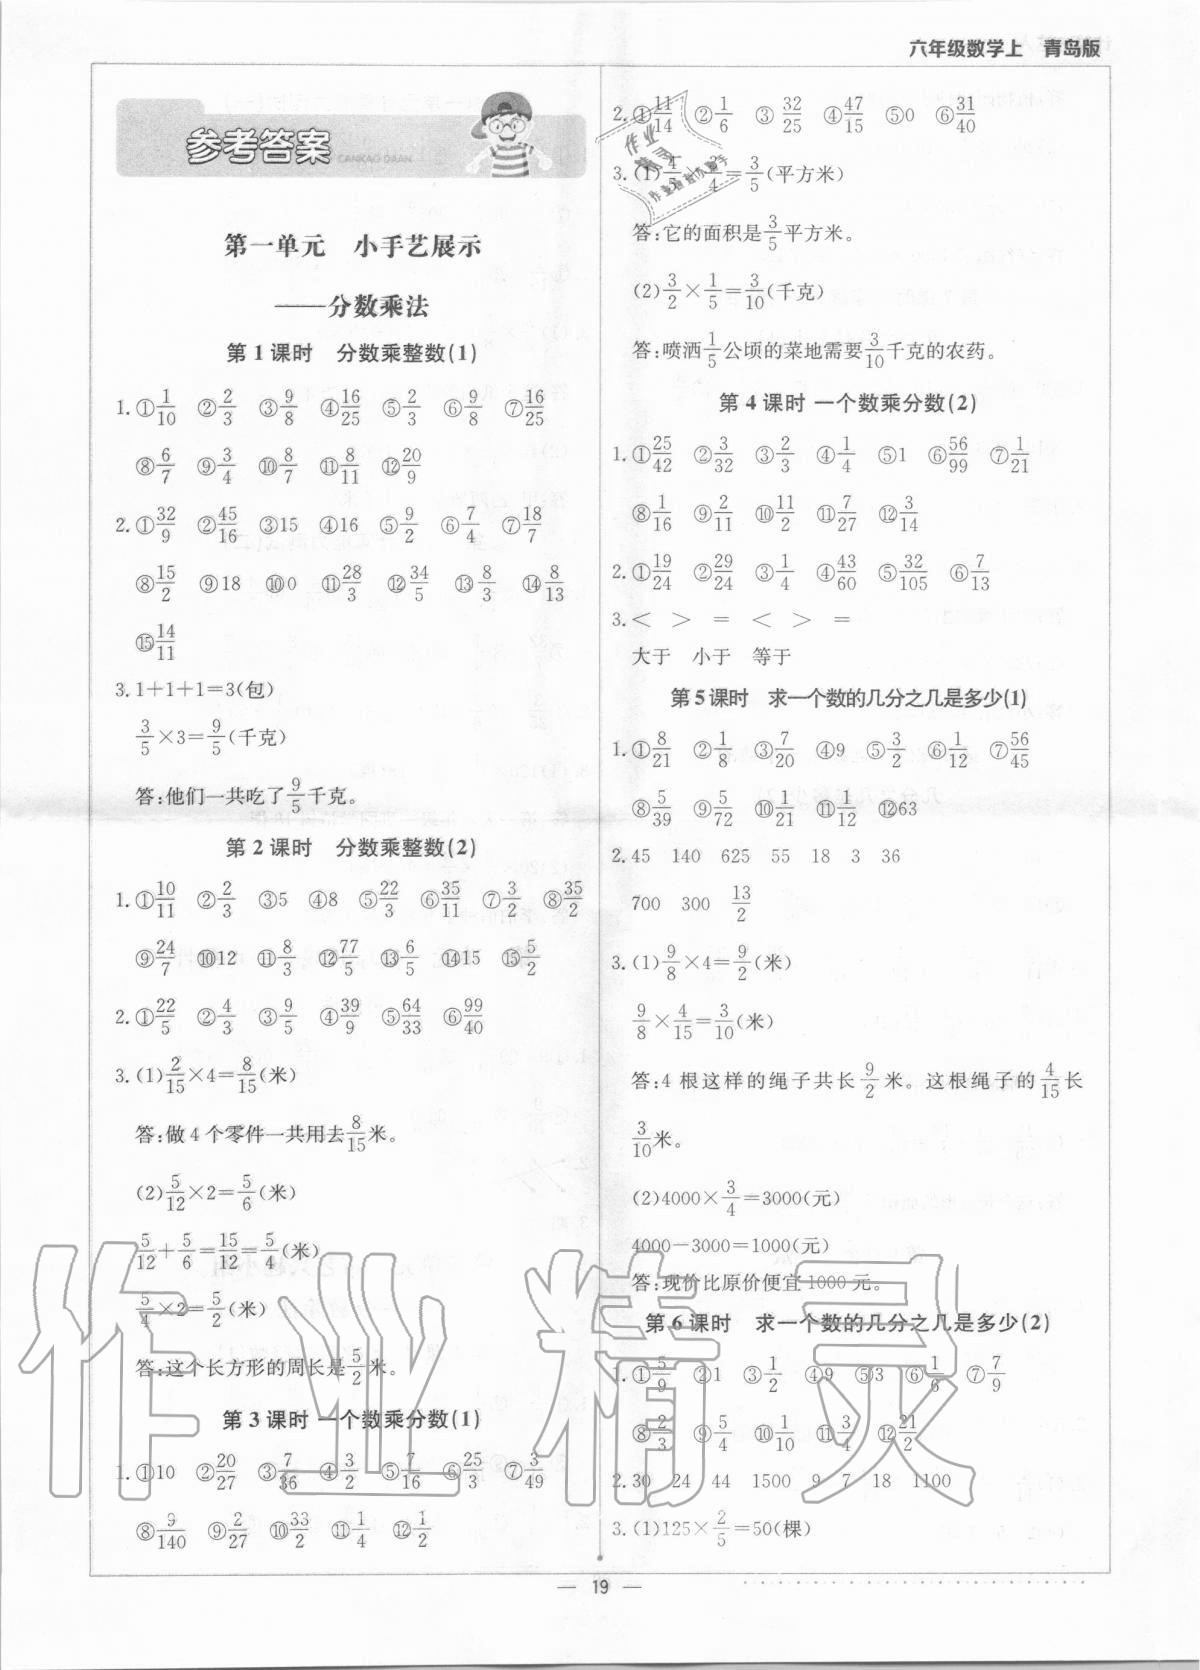 六年级数学上 青岛版
参考答案 CANKAO DAAN
第一单元 小手艺展示
——分数乘法
第1课时 分数乘整数(1)
1.①1/10 ②2/3 ③9/8 ④16/25 ⑤2/3 ⑥9/8 ⑦16/25
⑧6/7 ⑨3/4 ⑩8/7 ⑪8/11 ⑫20/9
2.①32/9 ②45/16 ③15 ④16 ⑤9/2 ⑥7/4 ⑦18/7
⑧15/2 ⑨18 ⑩0 ⑪28/3 ⑫34/5 ⑬8/3 ⑭8/13
⑮14/11
3.1+1+1=3(包)
3/5×3=9/5(千克)
答:他们一共吃了9/5千克。
第2课时 分数乘整数(2)
1.①10/11 ②2/3 ③5 ④8 ⑤22/3 ⑥35/11 ⑦3/2 ⑧35/2
⑨24/7 ⑩12 ⑪8/3 ⑫77/5 ⑬6/5 ⑭15 ⑮5/2
2.①22/5 ②4/3 ③9/5 ④39/9 ⑤64/33 ⑥99/40
3.(1)2/15×4=8/15(米)
答:做4个零件一共用去8/15米。
(2)5/12×2=5/6(米)
5/12+5/6=15/12=5/4(米)
5/4×2=5/2(米)
答:这个长方形的周长是5/2米。
第3课时 一个数乘分数(1)
1.①10 ②20/27 ③7/36 ④3/2 ⑤7/16 ⑥25/3 ⑦3/49
⑧9/140 ⑨2/27 ⑩33/2 ⑪1/4 ⑫1/2
2.①11/14 ②1/6 ③32/25 ④47/15 ⑤0 ⑥31/40
3.(1)4/5×3/4=3/5(平方米)
答:它的面积是3/5平方米。
(2)3/2×1/5=3/10(千克)
答:喷洒1/5公顷的菜地需要3/10千克的农药。
第4课时 一个数乘分数(2)
1.①25/42 ②3/32 ③2/3 ④1/4 ⑤1 ⑥56/99 ⑦1/21
⑧1/16 ⑨2/11 ⑩11/2 ⑪7/27 ⑫3/14
2.①19/24 ②29/24 ③1/4 ④43/60 ⑤32/105 ⑥7/13
3.< > = < > =
大于 小于 等于
第5课时 求一个数的几分之几是多少(1)
1.①8/21 ②1/8 ③7/20 ④9 ⑤3/2 ⑥1/12 ⑦56/45
⑧5/39 ⑨5/72 ⑩10/21 ⑪1/12 ⑫63
2.45 140 625 55 18 3 36
700 300 13/2
3.(1)9/8×4=9/2(米)
9/8×4/15=3/10(米)
答:4根这样的绳子共长9/2米。这根绳子的4/15长
3/10米。
(2)4000×3/4=3000(元)
4000-3000=1000(元)
答:现价比原价便宜1000元。
第6课时 求一个数的几分之几是多少(2)
1.①5/9 ②1 ③1/2 ④9 ⑤3 ⑥1/6 ⑦7/9
⑧2/3 ⑨5/4 ⑩1/10 ⑪3/4 ⑫21/2
2.30 24 44 1500 9 7 18 1100
3.(1)125×2/5=50(棵)
— 19 —
作业精灵